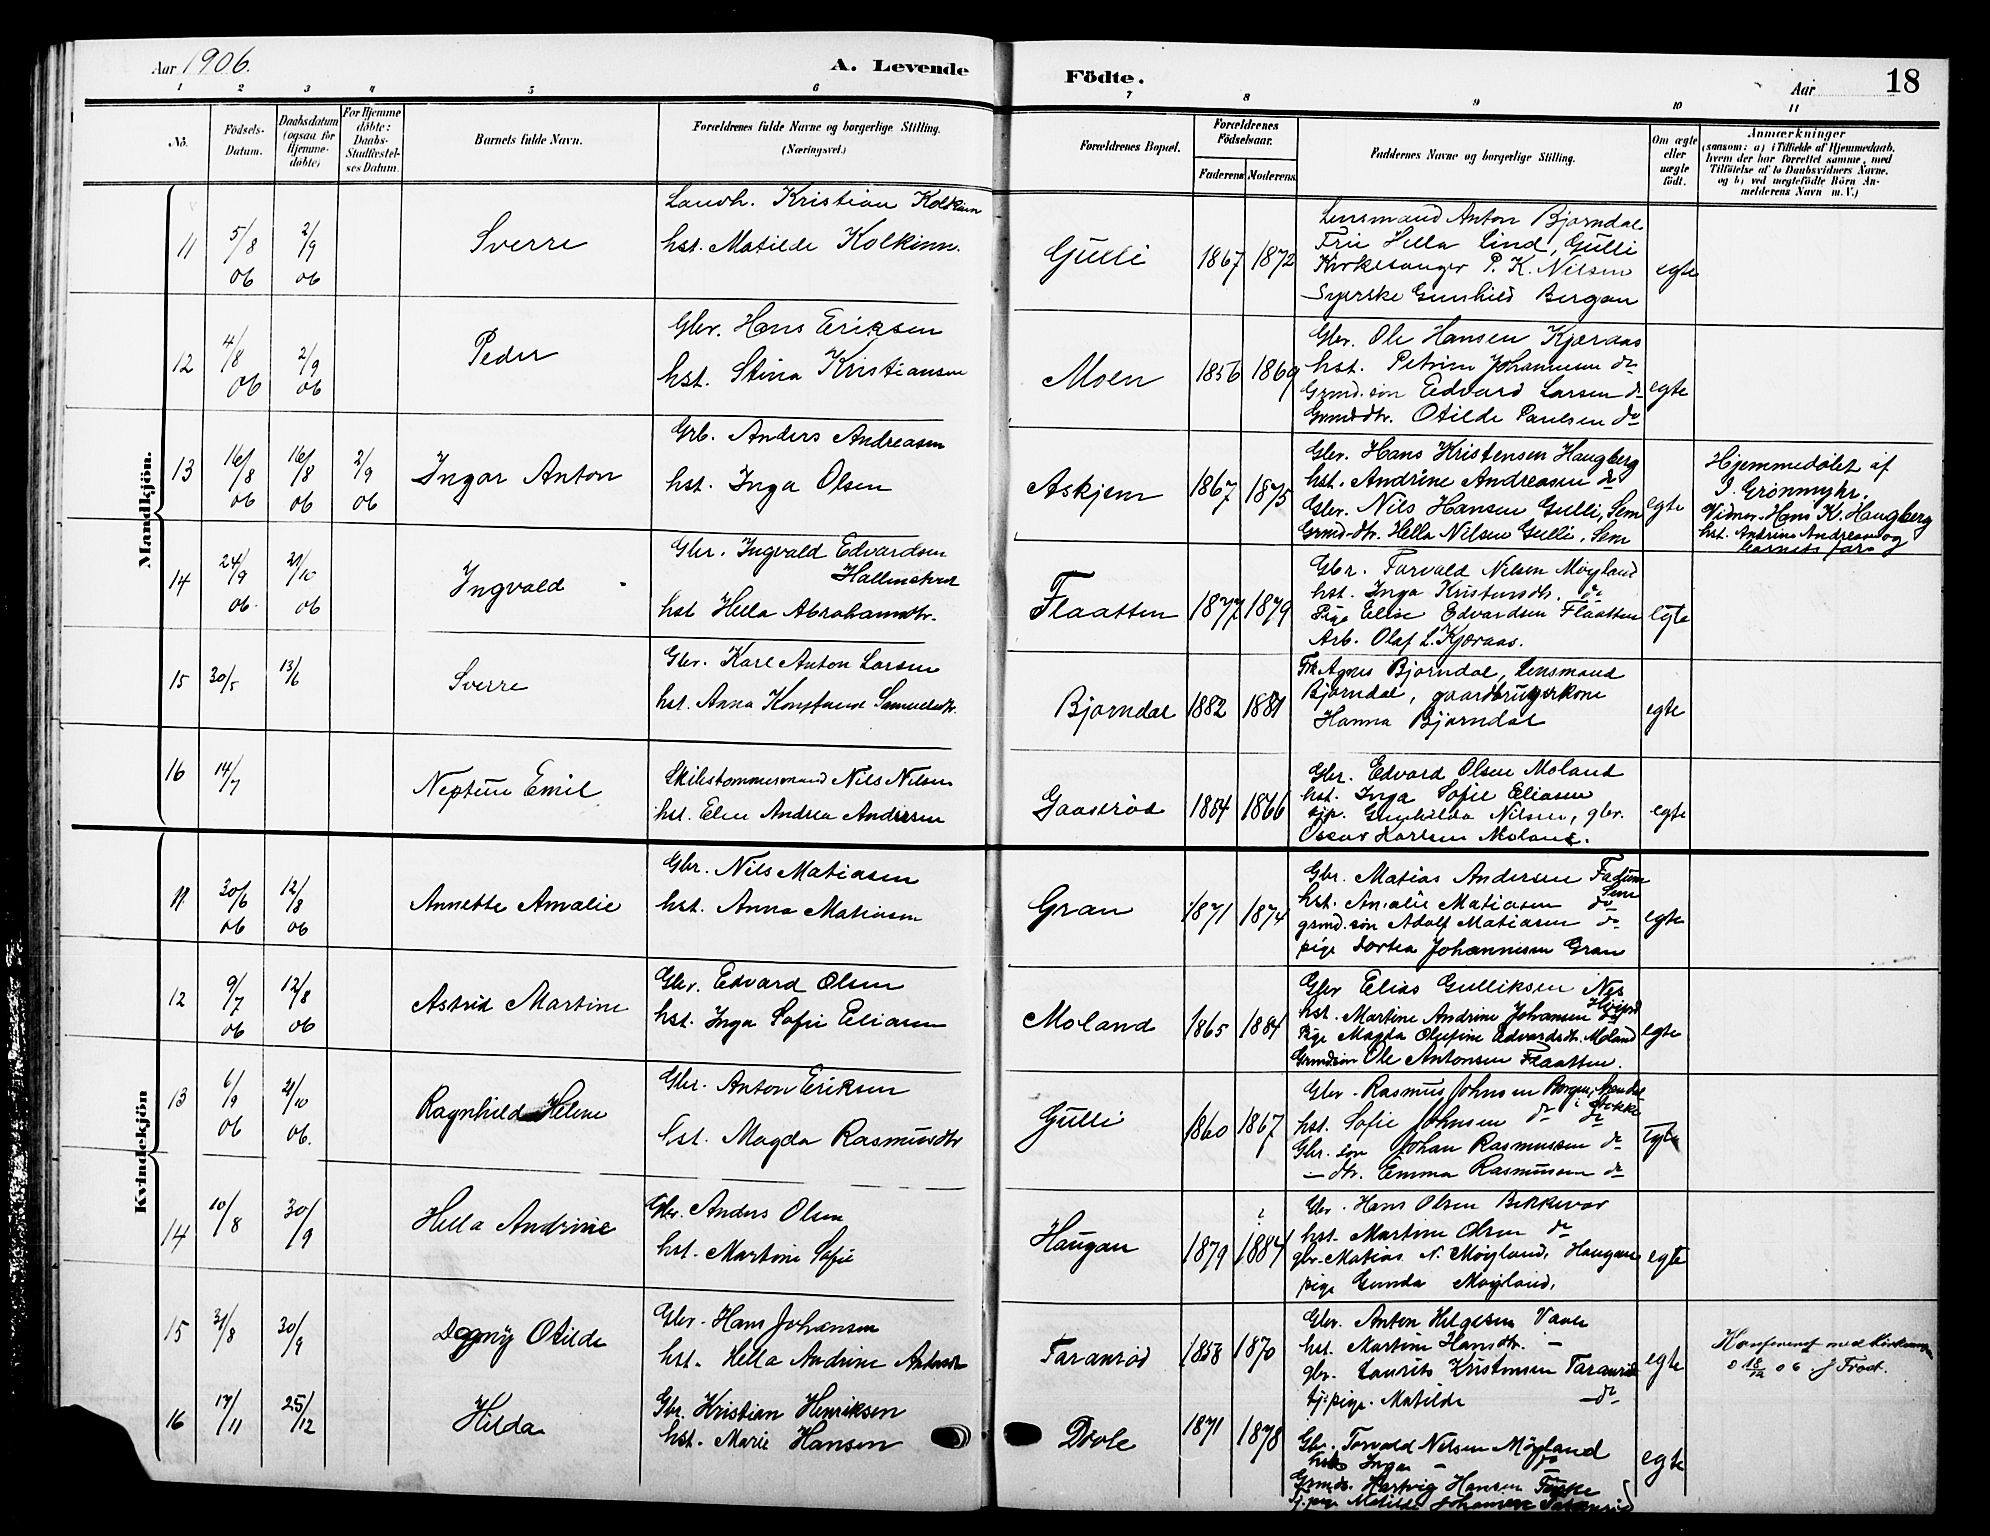 Aar 1906.
A. Levende Födte.
Aar
18
1 2 3 4 5 6 7 8 9 10 11
No.
Födsels-Datum.
Daabsdatum (ogsaa for Hjemmedöbte)
For Hjemmedöbte: Daabs-Stadfæstelses Datum.
Barnets fulde Navn.
Forældrenes fulde Navne og borgerlige Stilling. (Næringsvei.)
Forældrenes Bopæl.
Forældrenes Födselsaar.
Faderens Moderens
Faddernes Navne og borgerlige Stilling.
Om ægte eller uægte födt.
Anmærkninger
(saasom: a) i Tilfælde af Hjemmedaab, hvem der har forrettet samme, med Tilföielse af to Daabsvidners Navne. og b) ved uægtefödte Börn Anmelderens Navn m. V.)
Mandkjön.
11 5/8 06 2/9 06 Sverre
Landh. Kristian Kolkinn
hst. Matilde Kolkinn.
Gulli 1867 1872
Lensmand Anton Bjørndal
Frii Hella Lind, Gulli
Kirkesanger P. K. Nilsen
Syerske Gunhild Bergan
egte
12 4/8 06 2/9 06 Peder
Gbr. Hans Eriksen
hst. Stina Kristiansen
Moen 1856 1869
Gbr. Ole Hansen Kjæraas
hst. Petrine Johannesen do
Grmd.søn Edvard Larsen do
Grmd.dtr. Otilde Paulsen do
egte
13 16/8 06 16/8 06 2/9 06 Ingar Anton
Grb. Anders Andreasen
hst. Inga Olsen
Askjem 1867 1875
Gbr. Hans Kristensen Haugberg
hst. Andrine Andreasen do
Gbr. Nils Hansen Gulli, Sem
Grmd-dtr. Hella Nilsen Gulli, Sem
egte
Hjemmedøbt af
I. Grønmyhr.
Vidner. Hans K. Haugberg
hst. Andrine Andreasen og
barnets far
14 24/9 06. 21/10 06 Ingvald
Gbr. Ingvald Edvardsen
hst Hella Abrahamdtr.
Flaatten 1877 1879
Gbr. Torvald Nilsen Møyland
hst. Inga Kristensdtr. do
Pige Elise Edvardsen Flaatten
Arb. Olaf L. Kjæraas.
egte
15 30/5 13/6 Sverre
Gbr. Karl Anton Larsen
hst. Anna Konstanse Samuelsdtr.
Bjørndal 1882 1881
Frk Agnes Bjørndal, Lensmand
Bjørndal, gaardbrugerkone
Hanna Bjørndal
egte
16 14/7 Neptun Emil
Skibstømmermand Nils Nilsen
hst. Elen Andrea Andersen
Gaaserød 1884 1866
Gbr. Edvard Olsen Moland
hst. Inga Sofie Eliasen
Gunhilda Nilsen, gbr.
Oscar Karlsen Moland.
egte
Kvindekjön
11 30/6 06 12/8 06 Annette Amalie
Gbr. Nils Matiasen
hst. Anna Matiasen
Gran 1871 1874
Gbr. Matias Andersen Fadum
Sem
hst. Amalie Matiasen do
grmd.søn Adolf Matiasen do
pige Dortea Johannesen Gran
egte
12 9/7 06 12/8 06 Astrid Martine
Gbr. Edvard Olsen
hst. Inga Sofie Eliasen
Moland 1865 1884
Gbr Elias Gulliksen Nes
hst. Martine Andrine Johansen
Pige Magda Olufine Edvardsdtr. Moland
Grmdsøn Ole Antonsen Flaatten.
egte
13 6/9 06 21/10 06. Ragnhild Helene
Gbr. Anton Eriksen
hst. Magda Rasmusdtr
Gulli 1860 1867
Gbr. Rasmus Johnsen Borgen,
Stokke
hst. Sofie Johnsen do do
Gbr. søn Johan Rasmussen do
— dtr. Emma Rasmussen do
egte
14 10/8 30/9 Hella Andrine
Gbr. Anders Olsen
hst. Martine Sofie
Haugan 1879 1884
Gbr. Hans Olsen Bekkevar
hst. Martine Olsen do
gbr. Matias N. Møyland, Haugan
pige Gunda Møyland.
egte
15 31/8 30/9 Dagny Otilde
Gbr. Hans Johansen
hst. Hella Andrine
Taranrød 1858 1870
Gbr. Anton Helgesen
hst. Martine Hansdtr. —
gbr. Laurits Kristensen Taranrød
tj.pige. Matilde — do
egte
Konfereret med kirkebogen
d 18/12 06 J Frost.
16 17/11 25/12 Hilda
Gbr. Kristian Henriksen
hst. Marie Hansen
Dvole 1871 1878
Gbr. Torvald Nilsen Møyland
hst Inga — do
Grmds. Hartvig Hansen
tj.pige Matilde Johansen Taranrød
egte